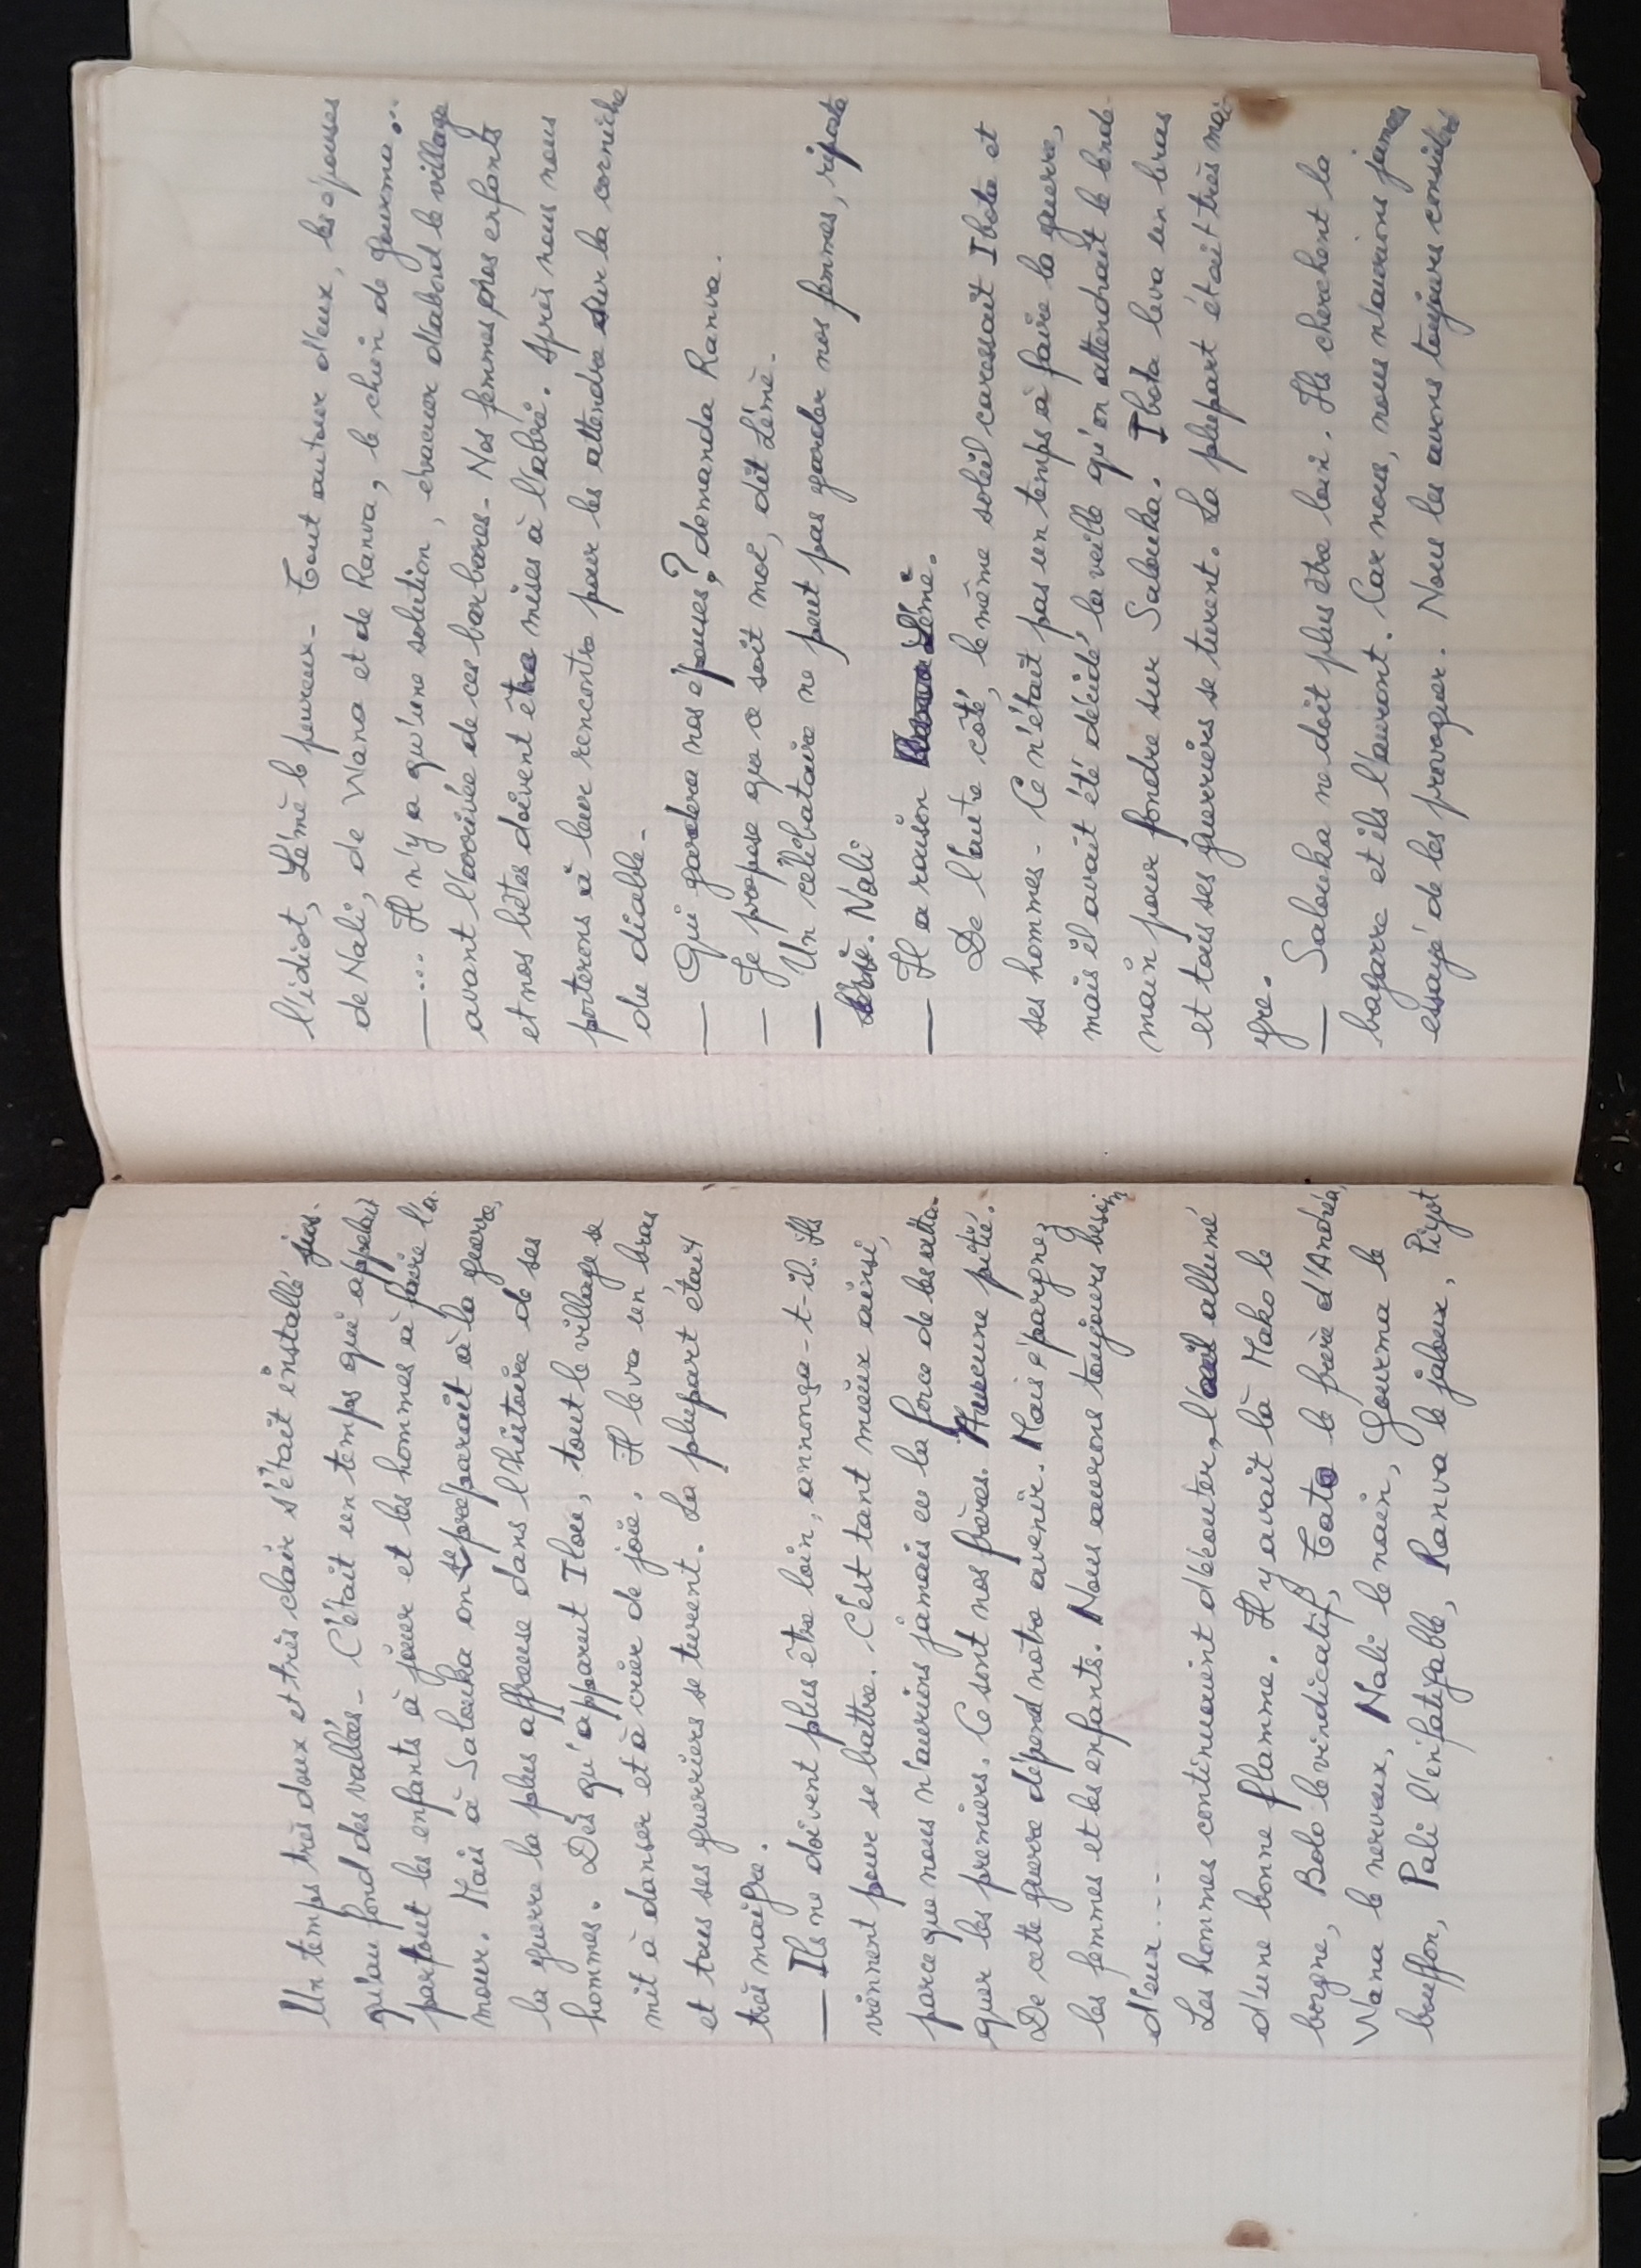 Un temps très doux et très clair s'était installé jus-
qu'au fond des vallées - C'était un temps qui appelait
partout les enfants à jouer et les hommes à faire l'a-
mour. Mais à Salouka on se préparait à la guerre,
la guerre la plus affreuse dans l'histoire de ses
hommes. Dès qu'apparut Ilou, tout le village se
mit à danser et à crier de joie. Il leva un bras
et tous ses guerriers se turent. La plupart était
très maigre.
— Ils ne doivent plus être loin, annonça-t-il. Ils
viennent pour se battre. C'est tant mieux ainsi,
parce que nous n'aurions jamais eu la force de les atta-
quer les premiers. Ce sont nos frères. Aucune pitié.
De cette guerre dépend nôtre avenir. Mais épargnez
les femmes et les enfants. Nous aurons toujours besoin
d'eux...
Les hommes continuaient d'écouter, l'œil allumé
d'une bonne flamme. Il y avait là Mako le
borgne, Bolo le vindicatif, Tato le frère d'Andréa,
Wana le nerveux, Nali le nain, Gourma le
bouffon, Pali l'infatigable, Ranva le jaloux, Piyot
l'idiot, Lémè le peureux - Tout autour d'eux, les épouses
de Nali, de Wana et de Ranva, le chien de Gourma...
—... Il n'y a qu'une solution, évacuer d'abord le village
avant l'arrivée de ces barbares - Nos femmes, nos enfants
et nos bêtes doivent être mises à l'abri. Après nous nous
porterons à leur rencontre pour les attendre sur la corniche
du diable -
— Qui gardera nos épouses? demanda Ranva.
— Je propose que ce soit moi, dit Lémè.
— Un célibataire ne peut pas garder nos femmes, riposta
Nali
— Il a raison Lémè.
De l'autre côté, le même soleil caressait Ibota et
ses hommes - Ce n'était pas un temps à faire la guerre,
mais il avait été décidé la veille qu'on attendrait le lende-
main pour fondre sur Salouka. Ibota leva un bras
et tous ses guerriers se turent. La plupart était très mai-
gre.
— Salouka ne doit plus être loin. Ils cherchent la
bagarre et ils l'auront. Car nous, nous n'aurions jamais
essayé de les provoquer. Nous les avons toujours considéré